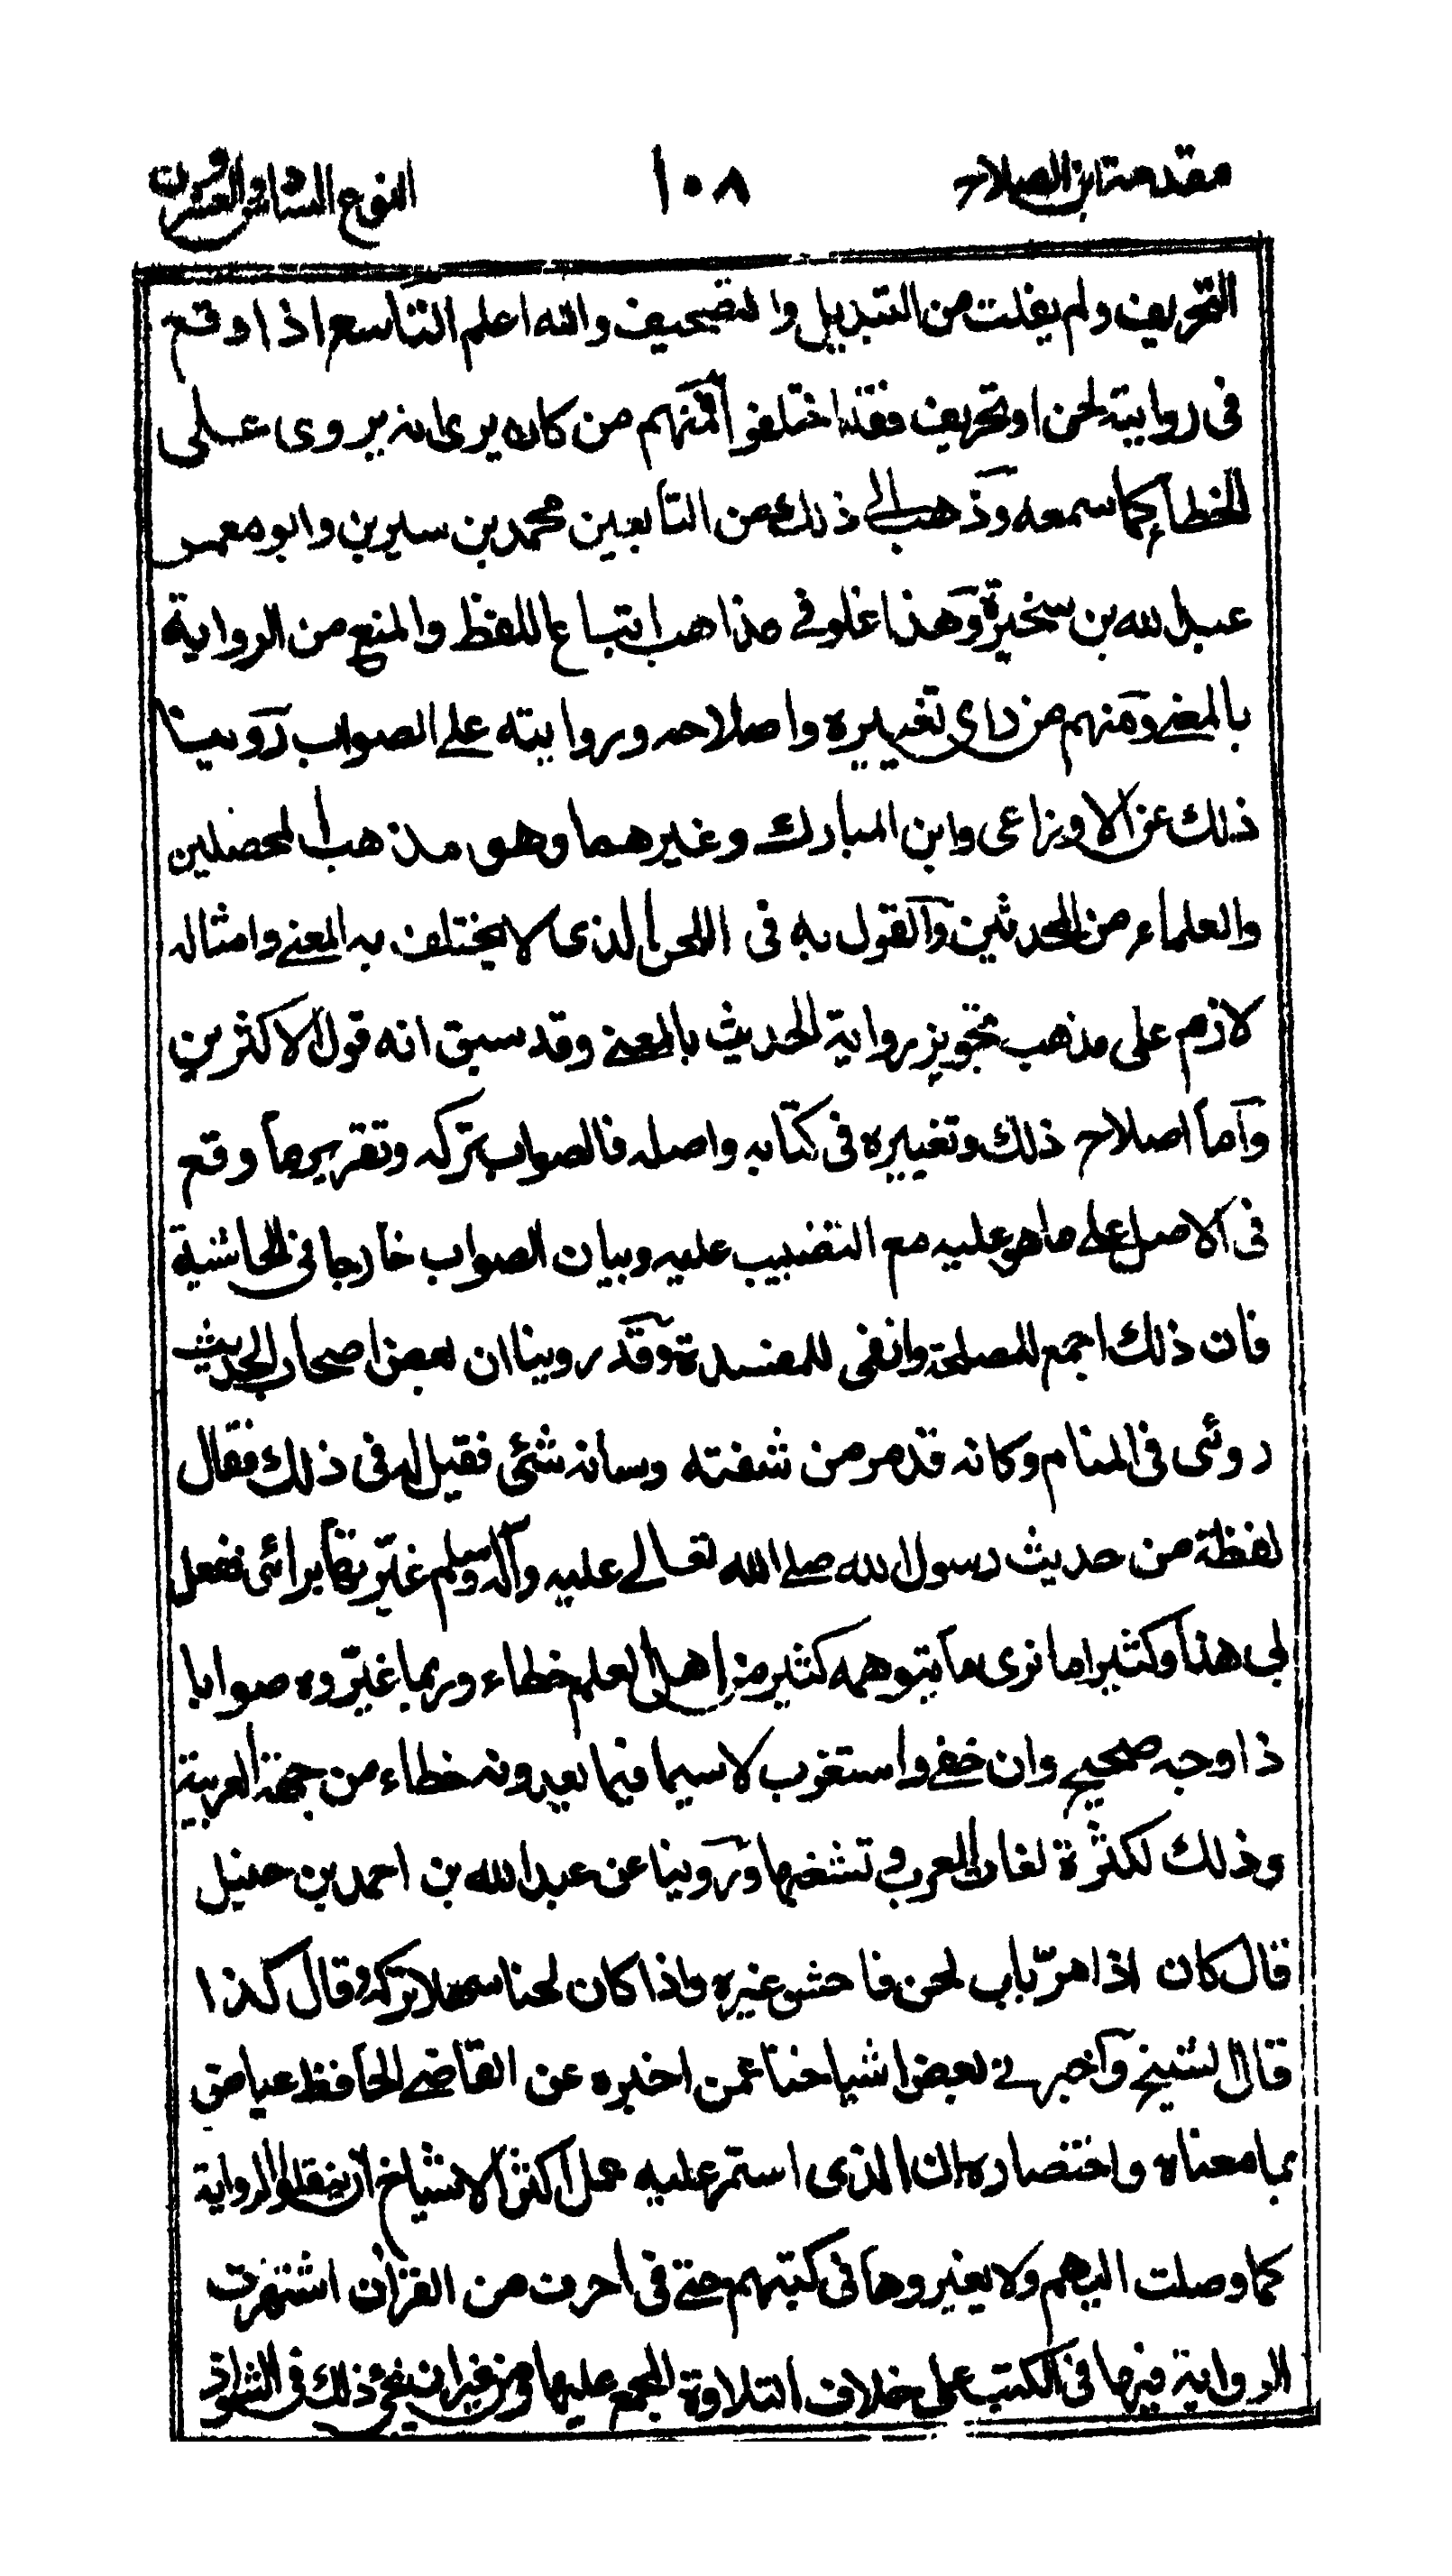 مقدمة ابن الصلاح ١٠٨ النوع السادس والعشرون
التحريف ولم يفلت من التبديل والتصحيف والله اعلم التاسع اذا وقع
فى روايته لحن او تحريف فقد اختلفوا فمنهم من كان يرى انه يروى على
الخطاء كما سمعه وذهب الى ذلك من التابعين محمد بن سيرين وابو معمر
عبد الله بن سخبرة وهذا غلو فى مذاهب اتباع اللفظ والمنع من الرواية
بالمعنے ومنهم من راى تغييره واصلاحه وروايته علے الصواب روينا
ذلك عن الاوزاعى وابن المبارك وغيرهما وهو مذهب المحصلين
والعلماء من المحدثين والقول به فى اللحن الذى لا يختلف به المعنے وامثاله
لازم على مذهب تجويز رواية الحديث بالمعنے وقد سبق انه قول الاكثرين
واما اصلاح ذلك وتغييره فى كتابه واصله فالصواب تركه وتقرير ما وقع
فى الاصل علے ما هو عليه مع التضبيب عليه وبيان الصواب خارجا فى الحاشية
فان ذلك اجمع للمصلحة وانفى للمفسدة وقد روينا ان بعض اصحاب الحديث
روئى فى المنام وكانه قد مر من شفته ولسانه شئى فقيل له فى ذلك فقال
لفظة من حديث رسول الله صلے الله تعالے عليه وآله وسلم غيّرتها برائى ففعل
بى هذا وكثيرا ما نرى ما يتوهمه كثير من اهل العلم خطاء وربما غيّروه صوابا
ذا وجه صحيح وان خفے واستغرب لا سيما فيما يعدونه خطاء من جهة العربية
وذلك لكثرة لغات العرب وتشعبها وروينا عن عبد الله بن احمد بن حنبل
قال كان اذا مرّ بابى لحن فاحش غيره واذا كان لحنا سهلا تركه وقال كذا
قال الشيخ وآخبرنے بعض اشياخنا عمن اخبره عن القاضے الحافظ عياض
بما معناه واختصاره ان الذى استمر عليه عمل اكثر الاشياخ ان ينقلوا الرواية
كما وصلت اليهم ولا يغيروها فى كتبهم حتے فى احرف من القرآن اشتهرت
الرواية فيها فى الكتب على خلاف التلاوة المجمع عليها ومن غير ان يجئ ذلك فى الشواذ